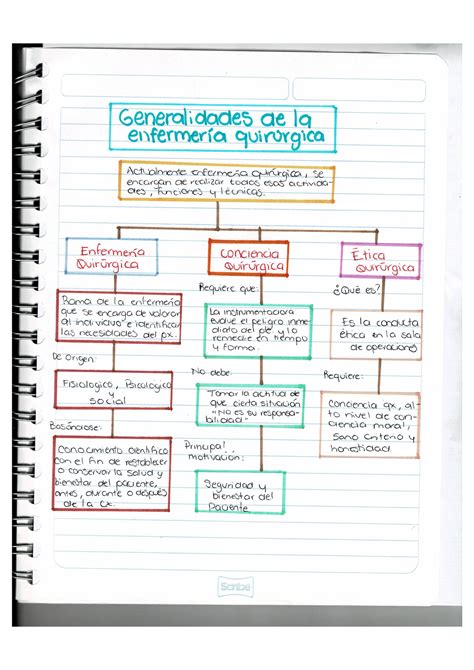 Generalidades de la
enfermería quirúrgica
Actualmente enfermería quirúrgica, se
encargan de realizar todos esas activida-
des, funciones y técnicas.
Enfermería
Quirúrgica
Rama de la enfermería
que se encarga de valorar
al individuo e identificar
las necesidades del px.
De origen:
Fisiologico, Psicologico
y
social
Basándose:
Conocimiento científico
con el fin de restablecer
o conservar la salud y
bienestar del paciente,
antes, durante o después
de la Cx.
Conciencia
Quirúrgica
Requiere que:
La instrumentadora
evalue el peligro inme
diato del pte y lo
remedie en tiempo
y forma.
No debe:
Tomar la actitud de
que cierta situación
"No es su responsa-
bilidad"
Principal
motivación:
Seguridad y
bienestar del
Paciente
Ética
Quirúrgica
¿Qué es?
Es la conducta
ética en la sala
de operaciones
Requiere:
Conciencia qx, al
to nivel de con-
ciencia moral,
sano criterio y
honestidad.
Scribe